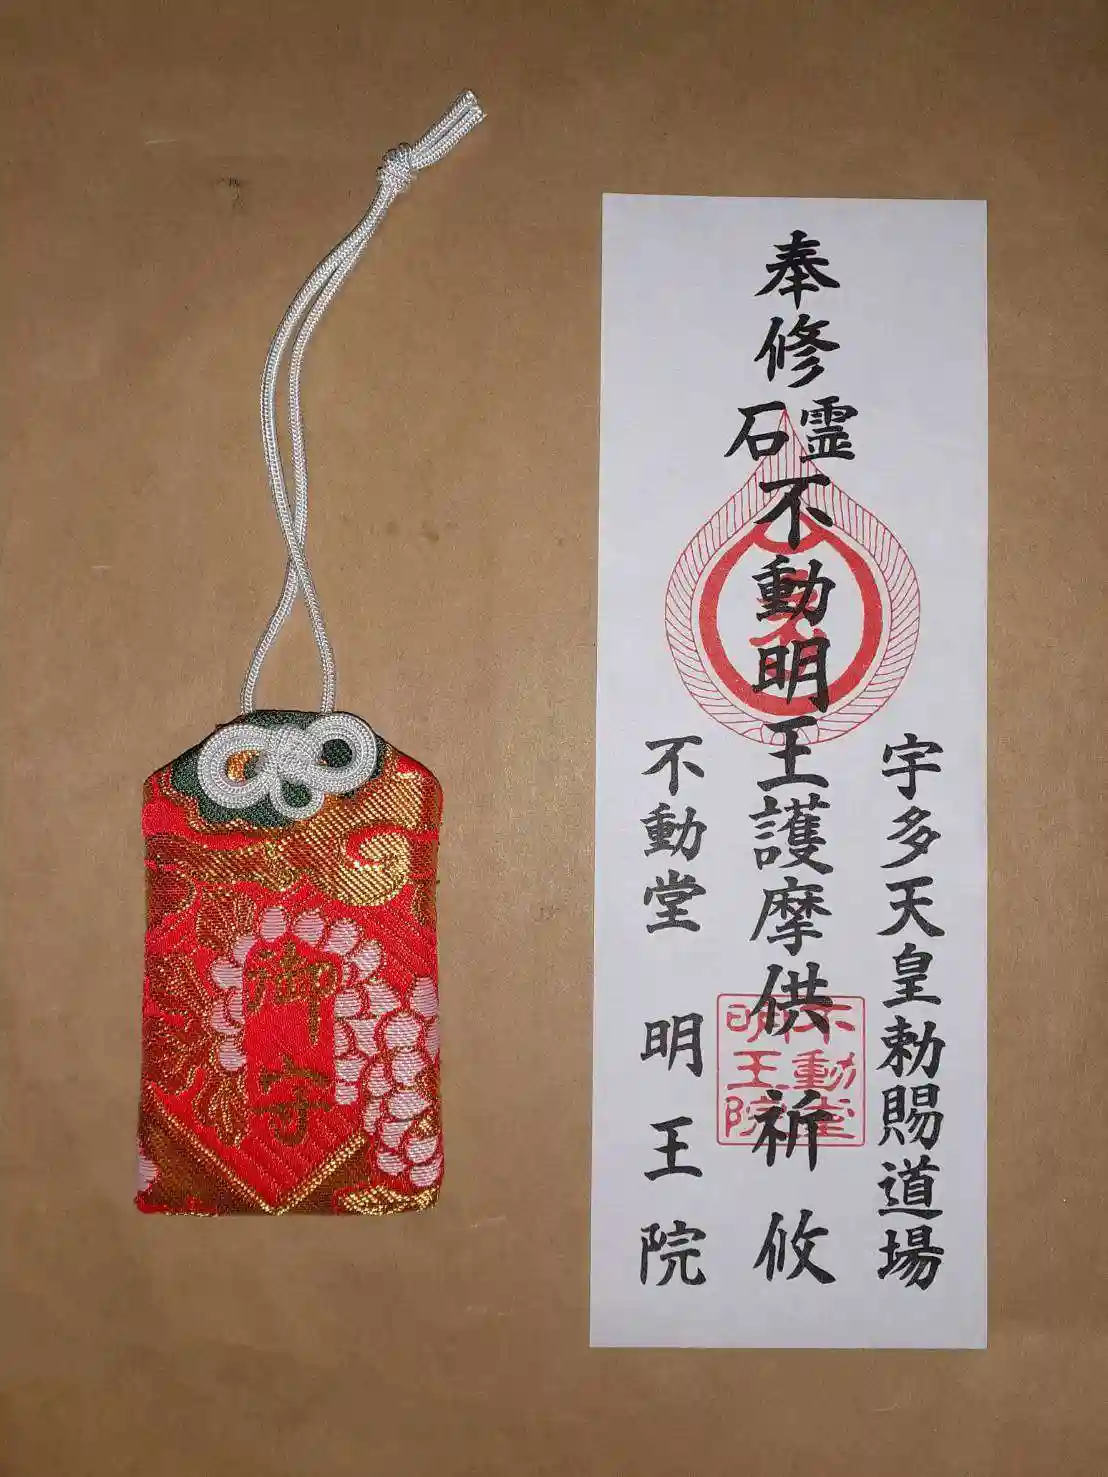 御守
奉修霊石不動明王護摩供祈攸
宇多天皇勅賜道場
不動堂 明王院
不動堂
明王院